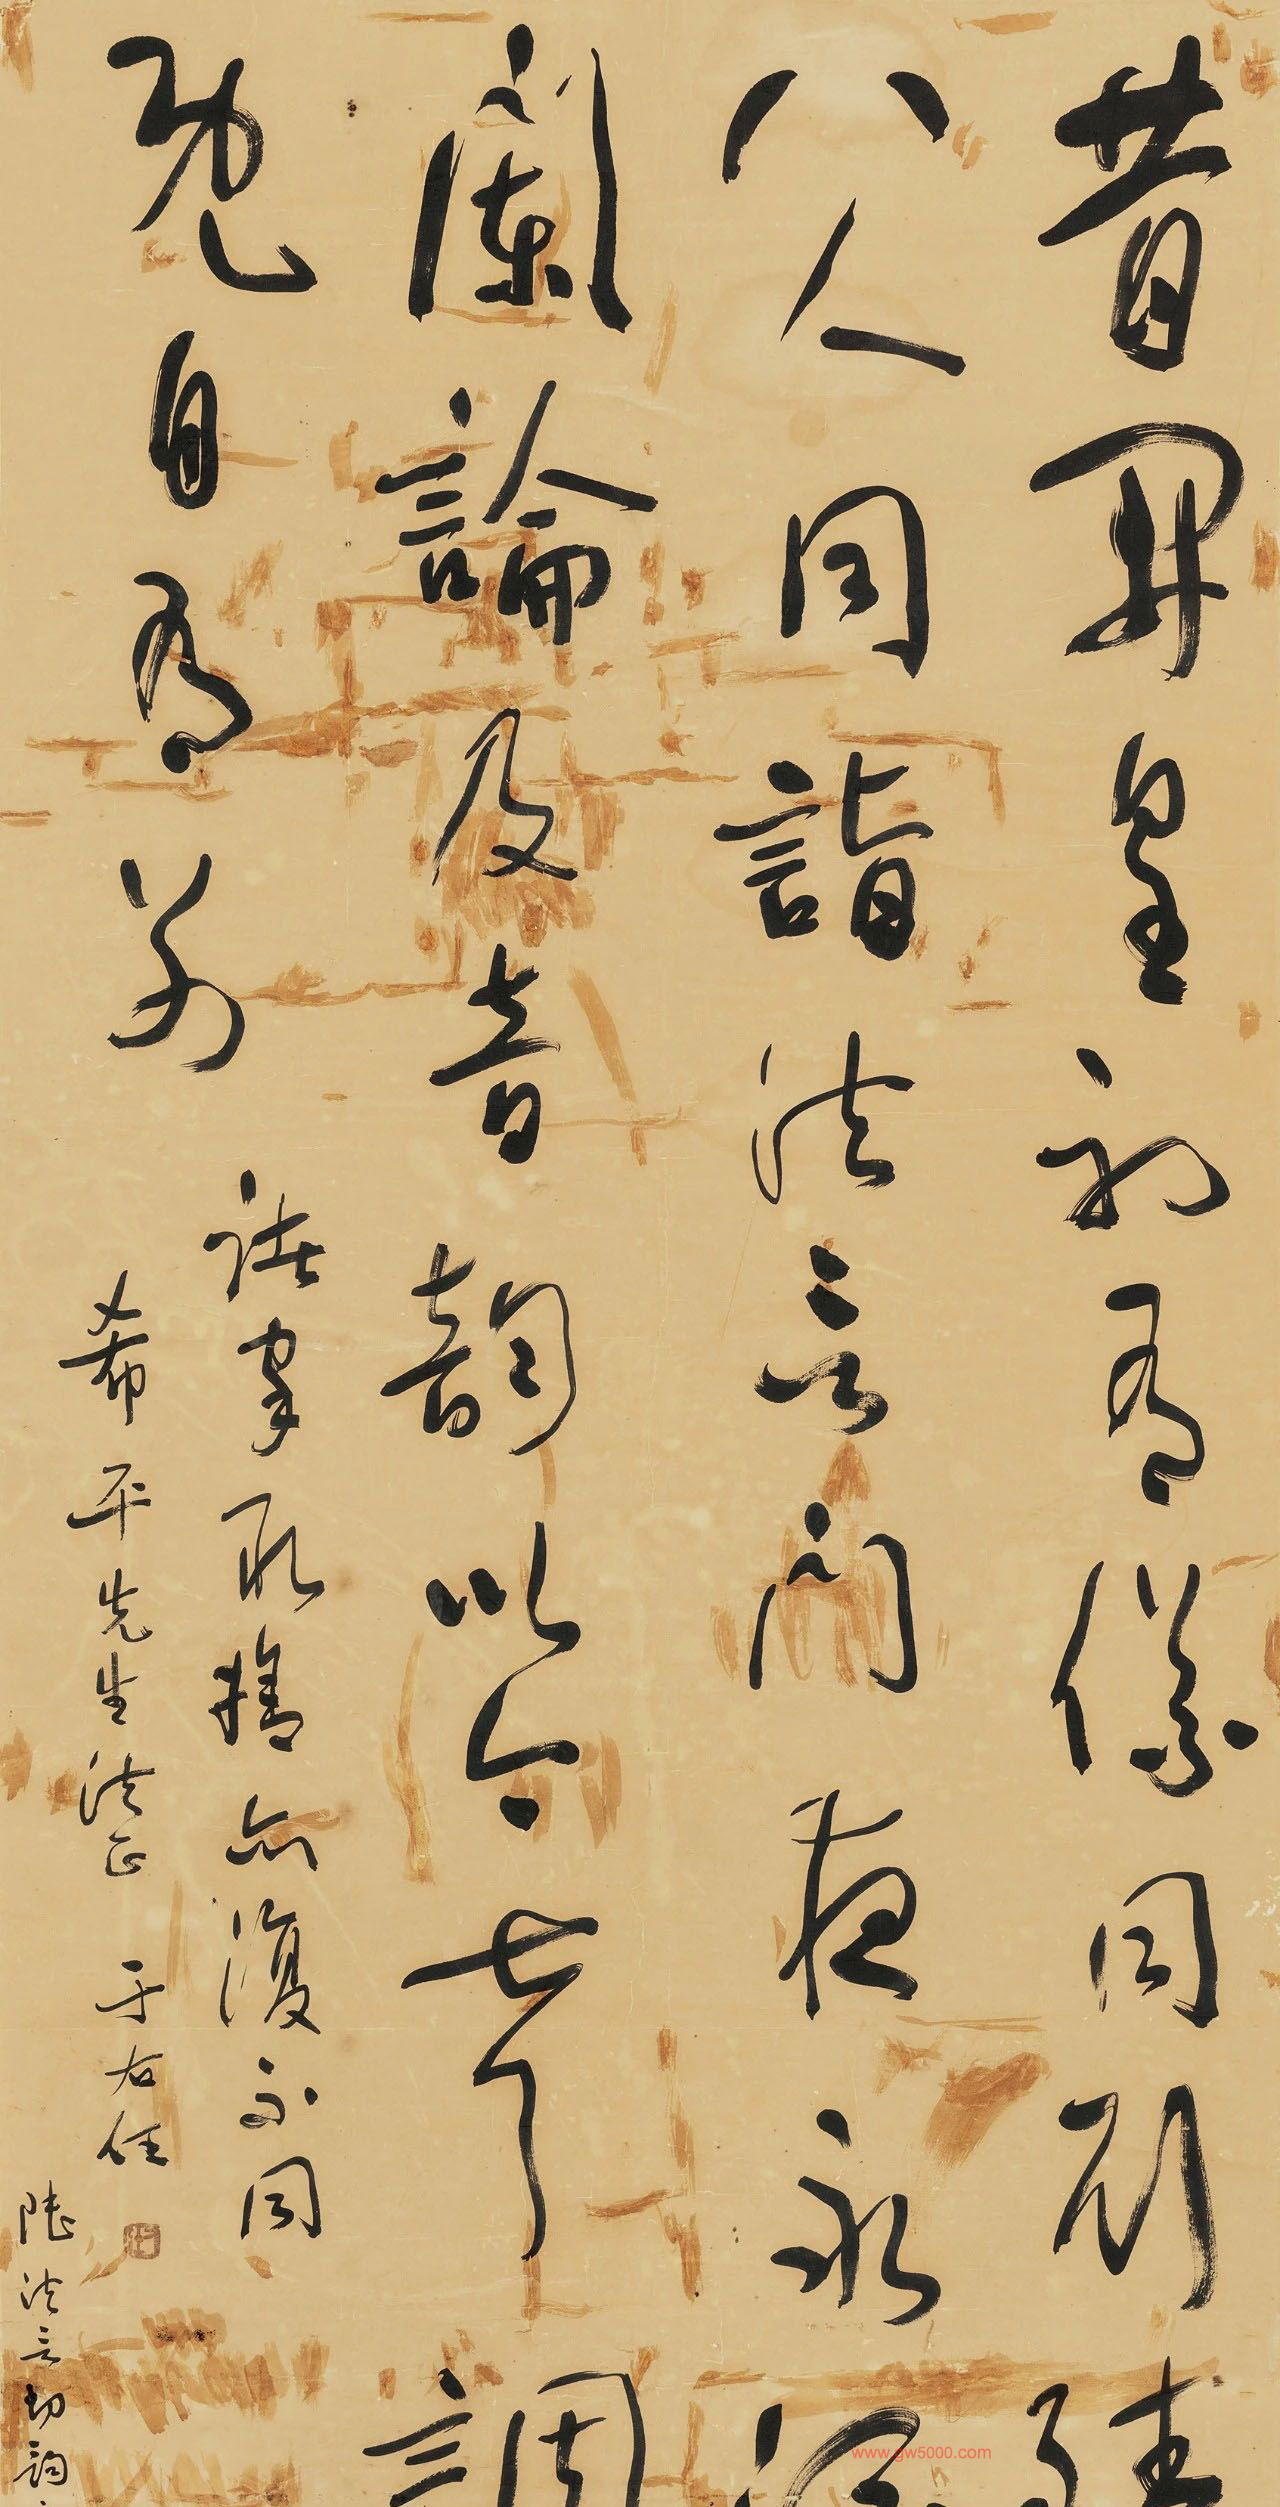 昔開皇初有儀同劉臻
八人同詣法言門夜永酒
闌論及音韻以今聲調
既自有別
諸家取捨亦復不同
希平先生法正
于右任
陸法言切韻
www.gw5000.com